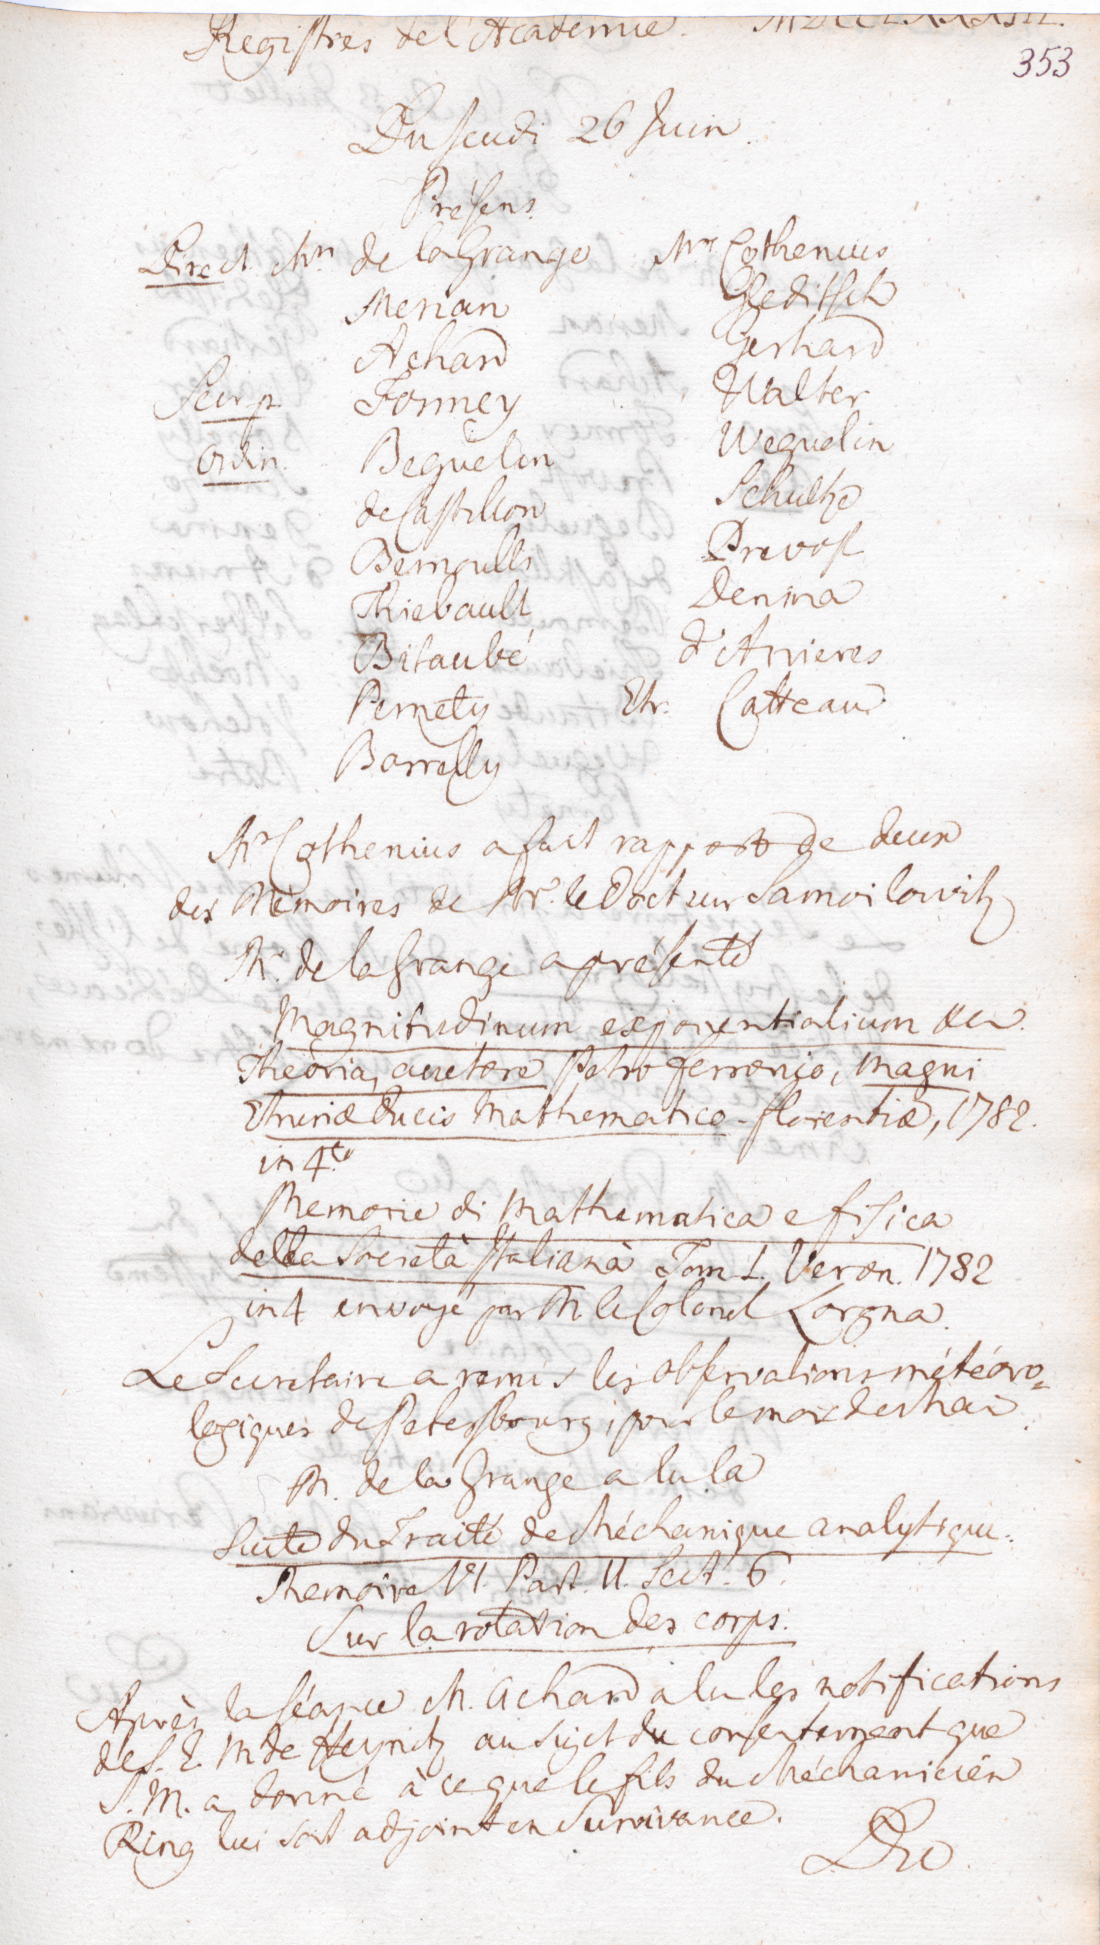 Registres de l'Academie. MDCCLXXXIII.
353
Du Jeudi 26 Juin
Présens
Direct. Mrs de la Grange Mrs Cothenius
Merian Gleditsch
Achard Gerhard
Secr. p. Formey Walter
Ordin. Beguelin Weguelin
de Castillon Schultze
Bernoulli Prevost
Thiebault Denina
Bitaubé d'Anieres
Pernety Etr. Catteau
Borrelly
Mr Cothenius a fait rapport de deux
des Mémoires de Mr. le Docteur Samoilowitz
Mr. de la Grange a présenté
Magnitudinum exponentialium
Theoria, auctore Petro Ferronio, magni
Etruriæ Ducis Mathematico. florentiæ, 1782.
in 4to
Memorie di Mathematica e fisica
della Società Italiana Tom I. Veron. 1782
in 4 envoyé par M le Colonel Lorgna.
Le Secretaire a remis les observations météoro=
logiques de Petersbourg, pour le mois de Mai
M. de la Grange a lu la
Suite du Traité de Méchanique analytique.
Memoire VI. Part. II. Sect. 6.
Sur la rotation des corps.
Après la séance M. Achard a lu les notifications
de S. E. M de Heynitz au sujet du consentement que
S. M. a donné à ce que le fils du Méchanicien
Ring lui soit adjoint en Survivance.
Du